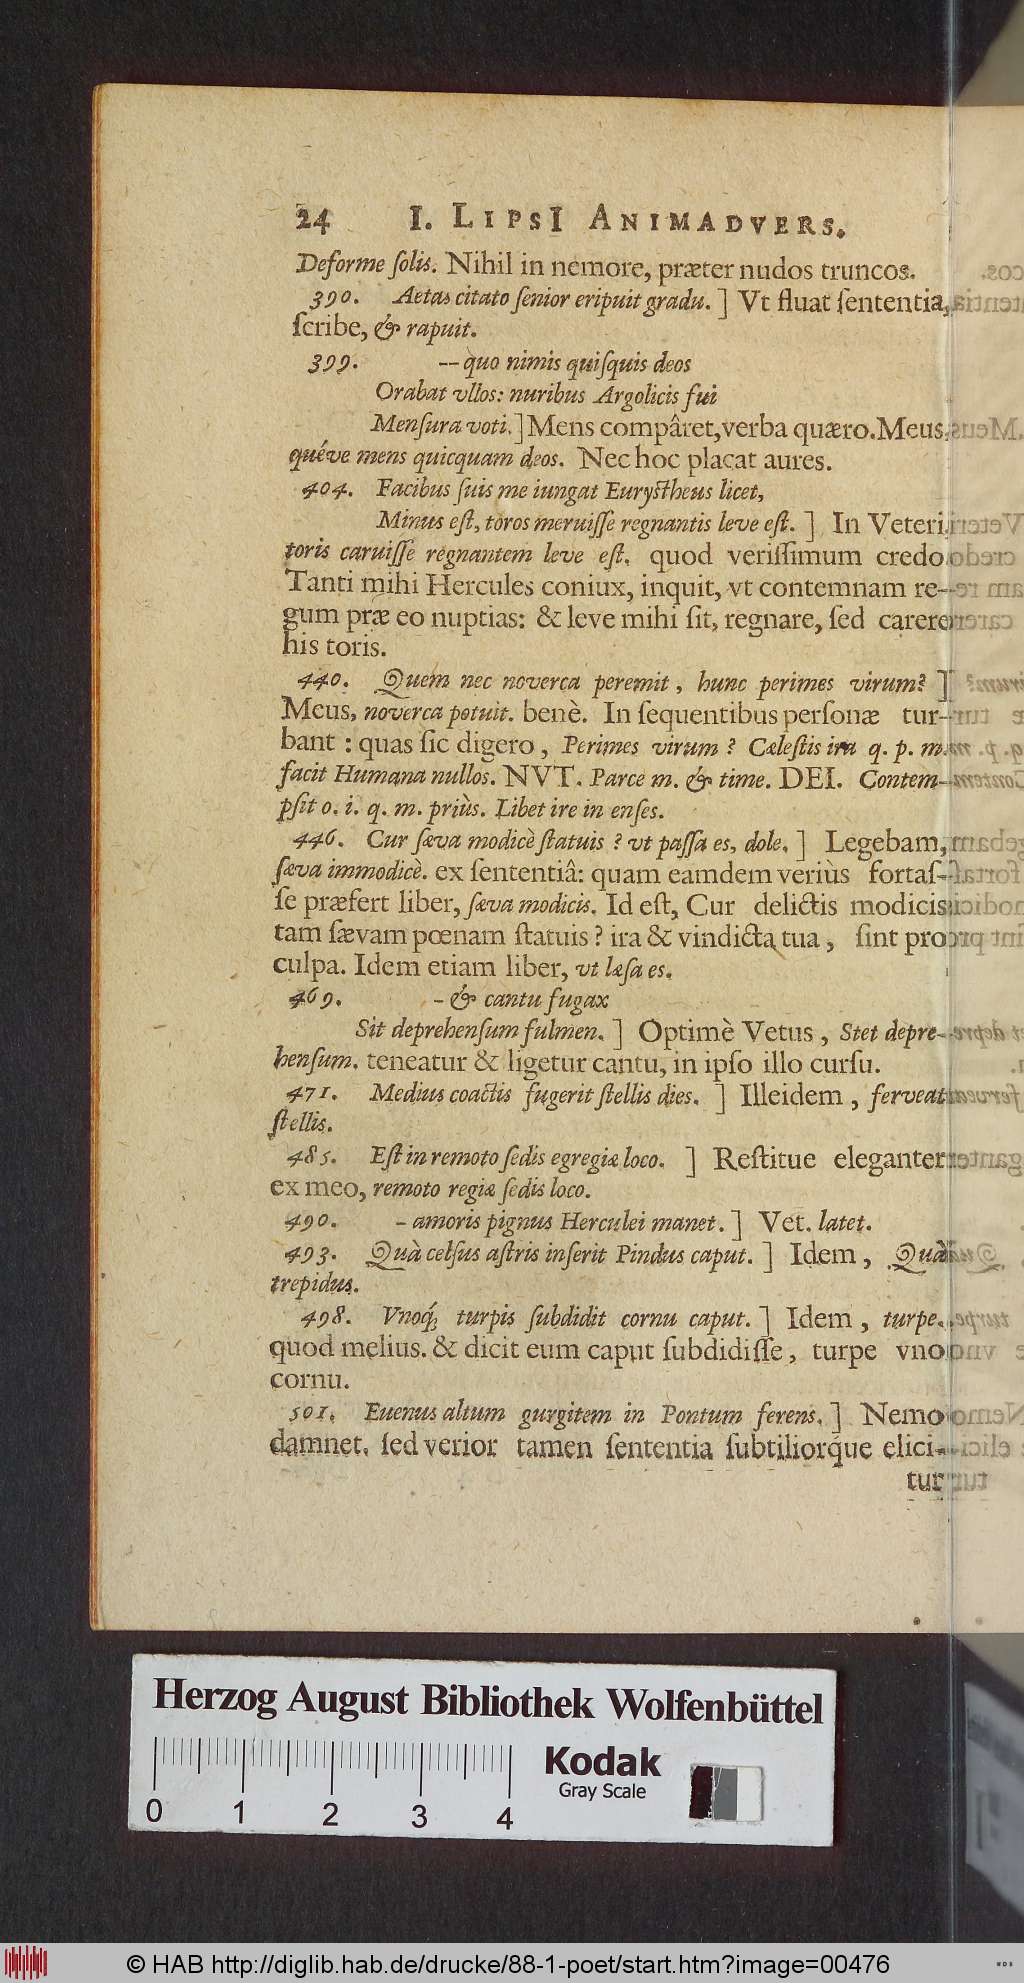 24 I. LIPSI ANIMADVERS.
Deforme ſolis. Nihil in nemore, præter nudos truncos.
390. Aetas citato ſenior eripuit gradu.] Vt fluat ſententia,
ſcribe, & rapuit.
399. -- quo nimis quiſquis deos
Orabat vllos: nuribus Argolicis fui
Menſura voti.] Mens compâret, verba quæro. Meus,
quéve mens quicquam deos. Nec hoc placat aures.
404. Facibus ſuis me iungat Euryſtheus licet,
Minus eſt, toros meruiſſe regnantis leve eſt.] In Veteri,
toris caruiſſe regnantem leve eſt. quod veriſſimum credo
Tanti mihi Hercules coniux, inquit, vt contemnam re-
gum præ eo nuptias: & leve mihi ſit, regnare, ſed carere
his toris.
440. Quem nec noverca peremit, hunc perimes virum?]
Meus, noverca potuit. benè. In ſequentibus perſonæ tur-
bant: quas ſic digero, Perimes virum? Cæleſtis ira q. p. m.
facit Humana nullos. NVT. Parce m. & time. DEI. Contem-
pſit o. i. q. m. priùs. Libet ire in enſes.
446. Cur ſæva modicè ſtatuis? vt paſſa es, dole.] Legebam,
ſæva immodicè. ex ſententiâ: quam eamdem veriùs fortaſ-
ſe præfert liber, ſæva modicis. Id eſt, Cur delictis modicis
tam ſævam pœnam ſtatuis? ira & vindicta tua, ſint pro
culpa. Idem etiam liber, vt læſa es.
469. - & cantu fugax
Sit deprehenſum fulmen.] Optimè Vetus, Stet depre-
henſum. teneatur & ligetur cantu, in ipſo illo curſu.
471. Medius coactis fugerit ſtellis dies.] Ille idem, ferveat
ſtellis.
485. Eſt in remoto ſedis egregiæ loco.] Reſtitue eleganter
ex meo, remoto regiæ ſedis loco.
490. - amoris pignus Herculei manet.] Vet. latet.
493. Quà celſus aſtris inſerit Pindus caput.] Idem, Quà
trepidus.
498. Vnoq́; turpis ſubdidit cornu caput.] Idem, turpe.
quod melius. & dicit eum caput ſubdidiſſe, turpe vno
cornu.
501. Euenus altum gurgitem in Pontum ferens.] Nemo
damnet. ſed verior tamen ſententia ſubtiliorq́ue elici-
tur
Herzog August Bibliothek Wolfenbüttel
Kodak
Gray Scale
0 1 2 3 4
© HAB http://diglib.hab.de/drucke/88-1-poet/start.htm?image=00476